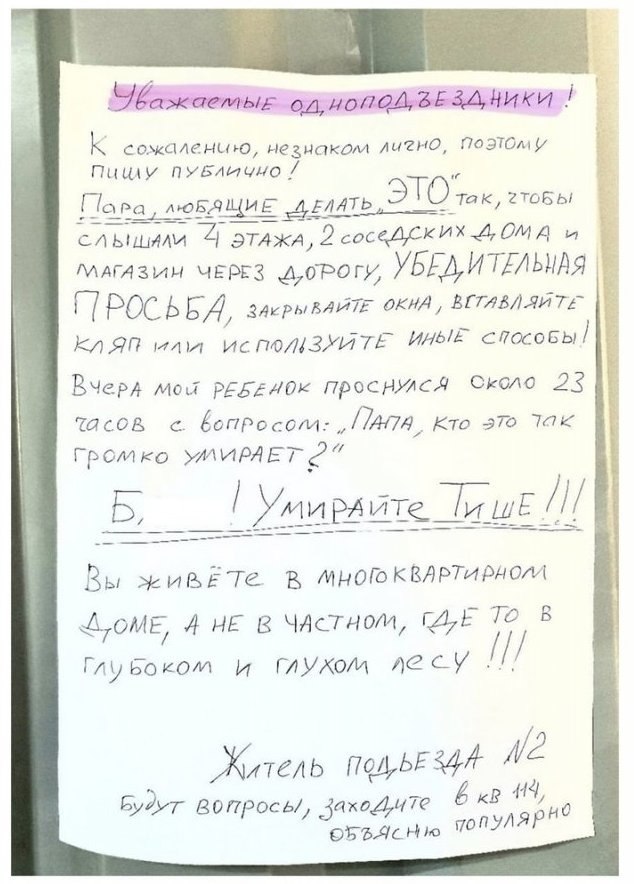 Уважаемые одноподъездники!
К сожалению, незнаком лично, поэтому
пишу публично!
Пара, любящие делать „ЭТО" так, чтобы
слышали 4 этажа, 2 соседских дома и
магазин через дорогу, УБЕДИТЕЛЬНАЯ
ПРОСЬБА, закрывайте окна, вставляйте
кляп или используйте иные способы!
Вчера мой ребенок проснулся около 23
часов с вопросом: „Папа, кто это так
громко умирает?"
Б, ! Умирайте Тише!!!
Вы живёте в многоквартирном
доме, а не в частном, где то в
глубоком и глухом лесу!!!
Житель подьезда №2
Будут вопросы, заходите в кв 114,
объясню популярно